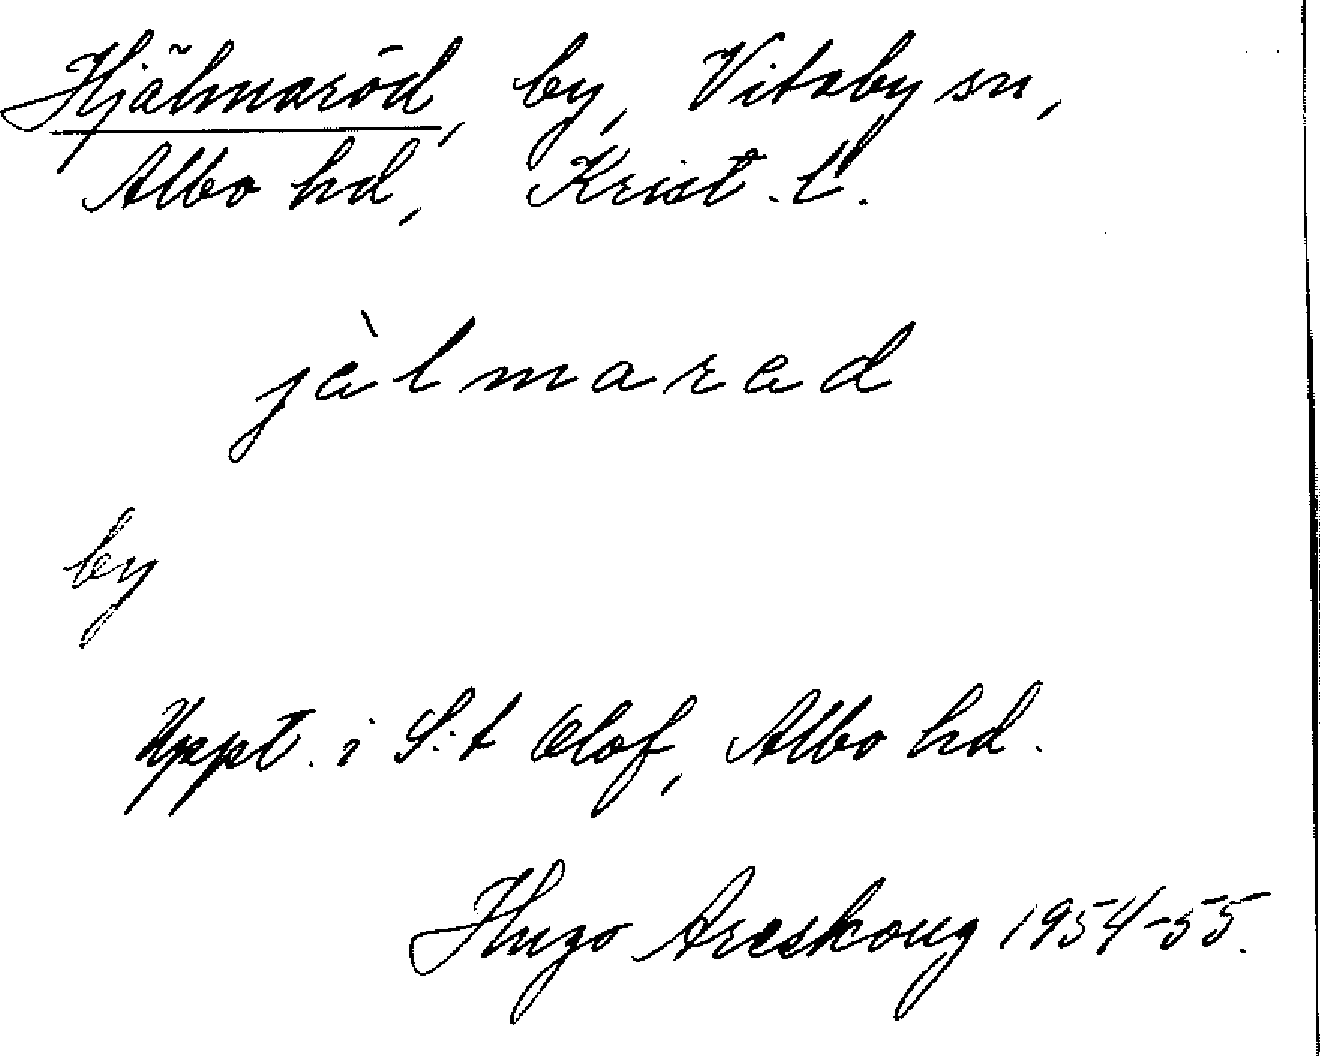 Hjälmaröd, by, Vitaby sn,
Albo hd, Krist. L.
jàlmarad
by
Uppt. i S:t Olof, Albo hd.
Hugo Areskoug 1954-55.